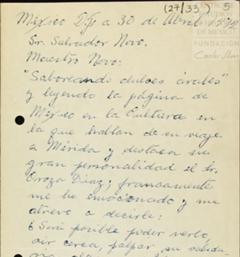 (27/33) 5
México D.F. a 30 de Abril
Sr. Salvador Novo.
Maestro Novo:
"Saboreando dulces árabes"
y leyendo la página de
México en la Cultura en
la que hablan de su viaje
a Mérida y destaca su
gran personalidad el Sr.
Díaz; francamente
me he emocionado y me
atrevo a decirle:
¿Será posible poder verlo,
oir cerca, palpar, su